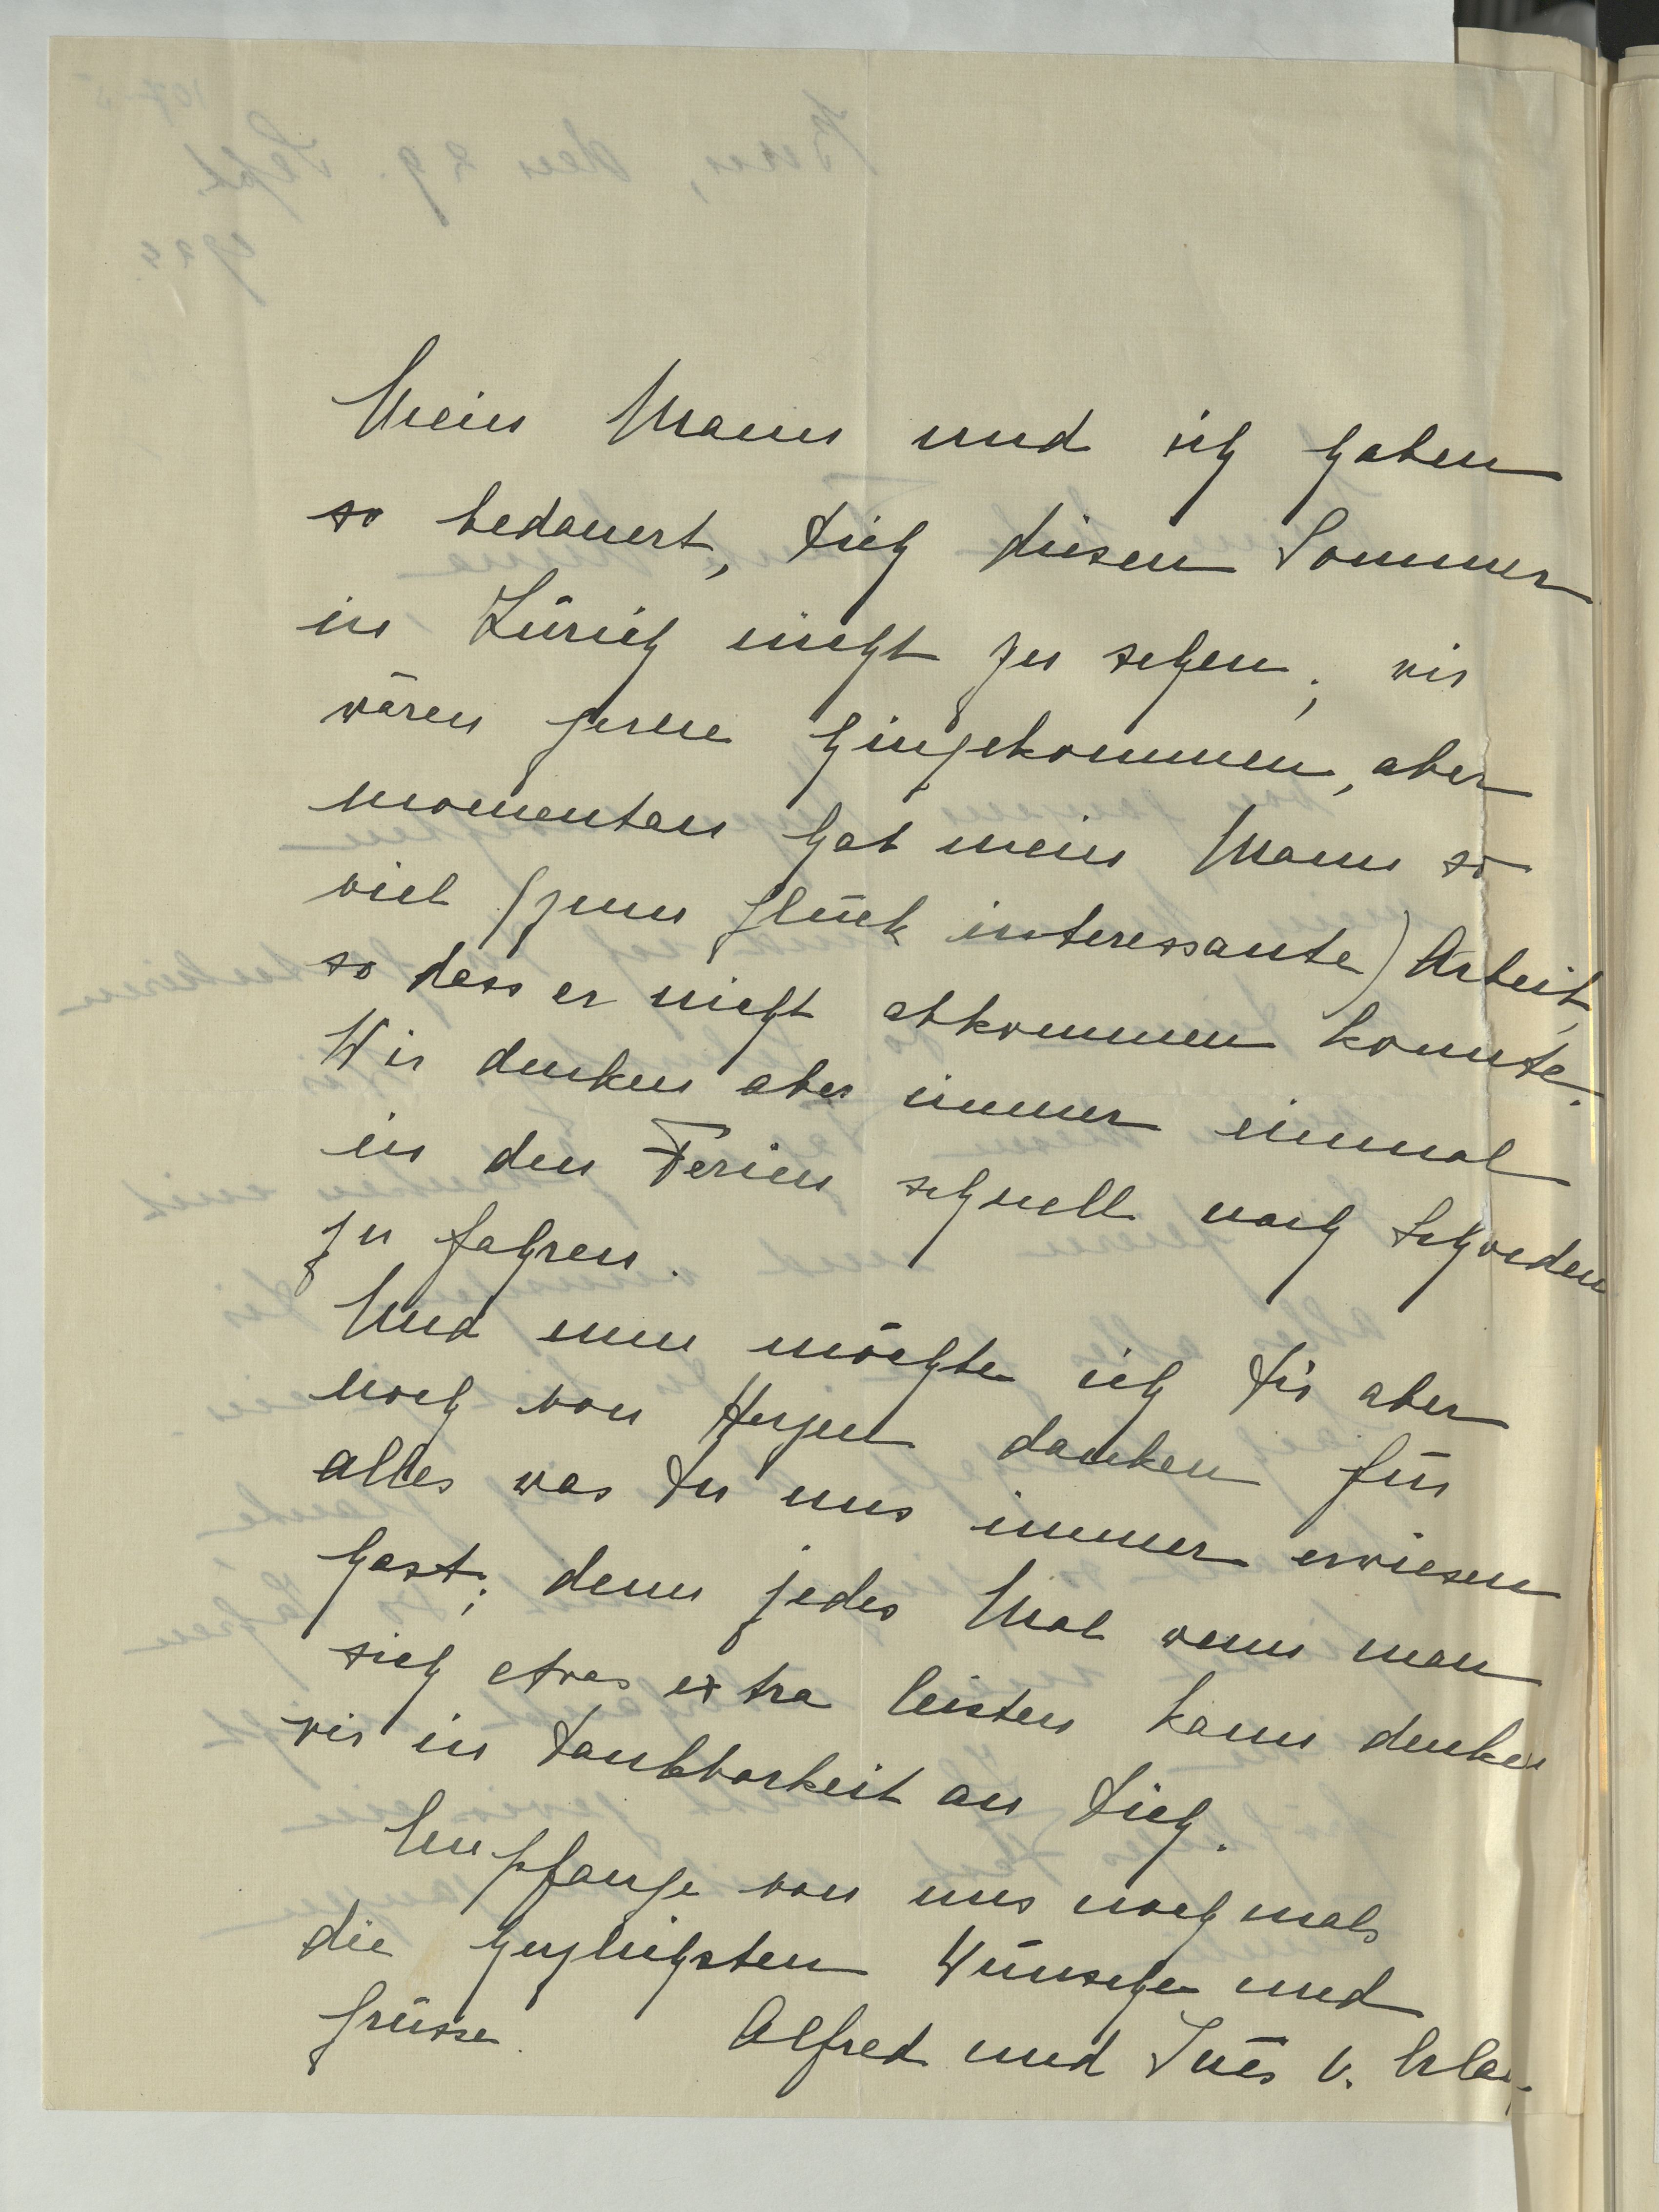 Mein Mann und ich haben
so bedauert, Dich diesen Sommer
in Zürich nicht zu sehen; wir
wären gerne hingekommen, aber
momentan hat mein Mann so
viel (zum Glück interessante) Arbeit,
so dass er nicht abkommen konnte.
Wir denken aber immer einmal
in den Ferien schnell nach Schweden
zu fahren.
Und nun möchte ich Dir aber
noch von Herzen danken für
alles was Du uns immer erwiesen
hast; denn jedes Mal wenn man
sich etwas extra leisten kann denken
wir in Dankbarkeit an Dich.
Empfange von uns nochmals
die herzlichsten Wünsche und
Grüsse. Alfred und Inès v.